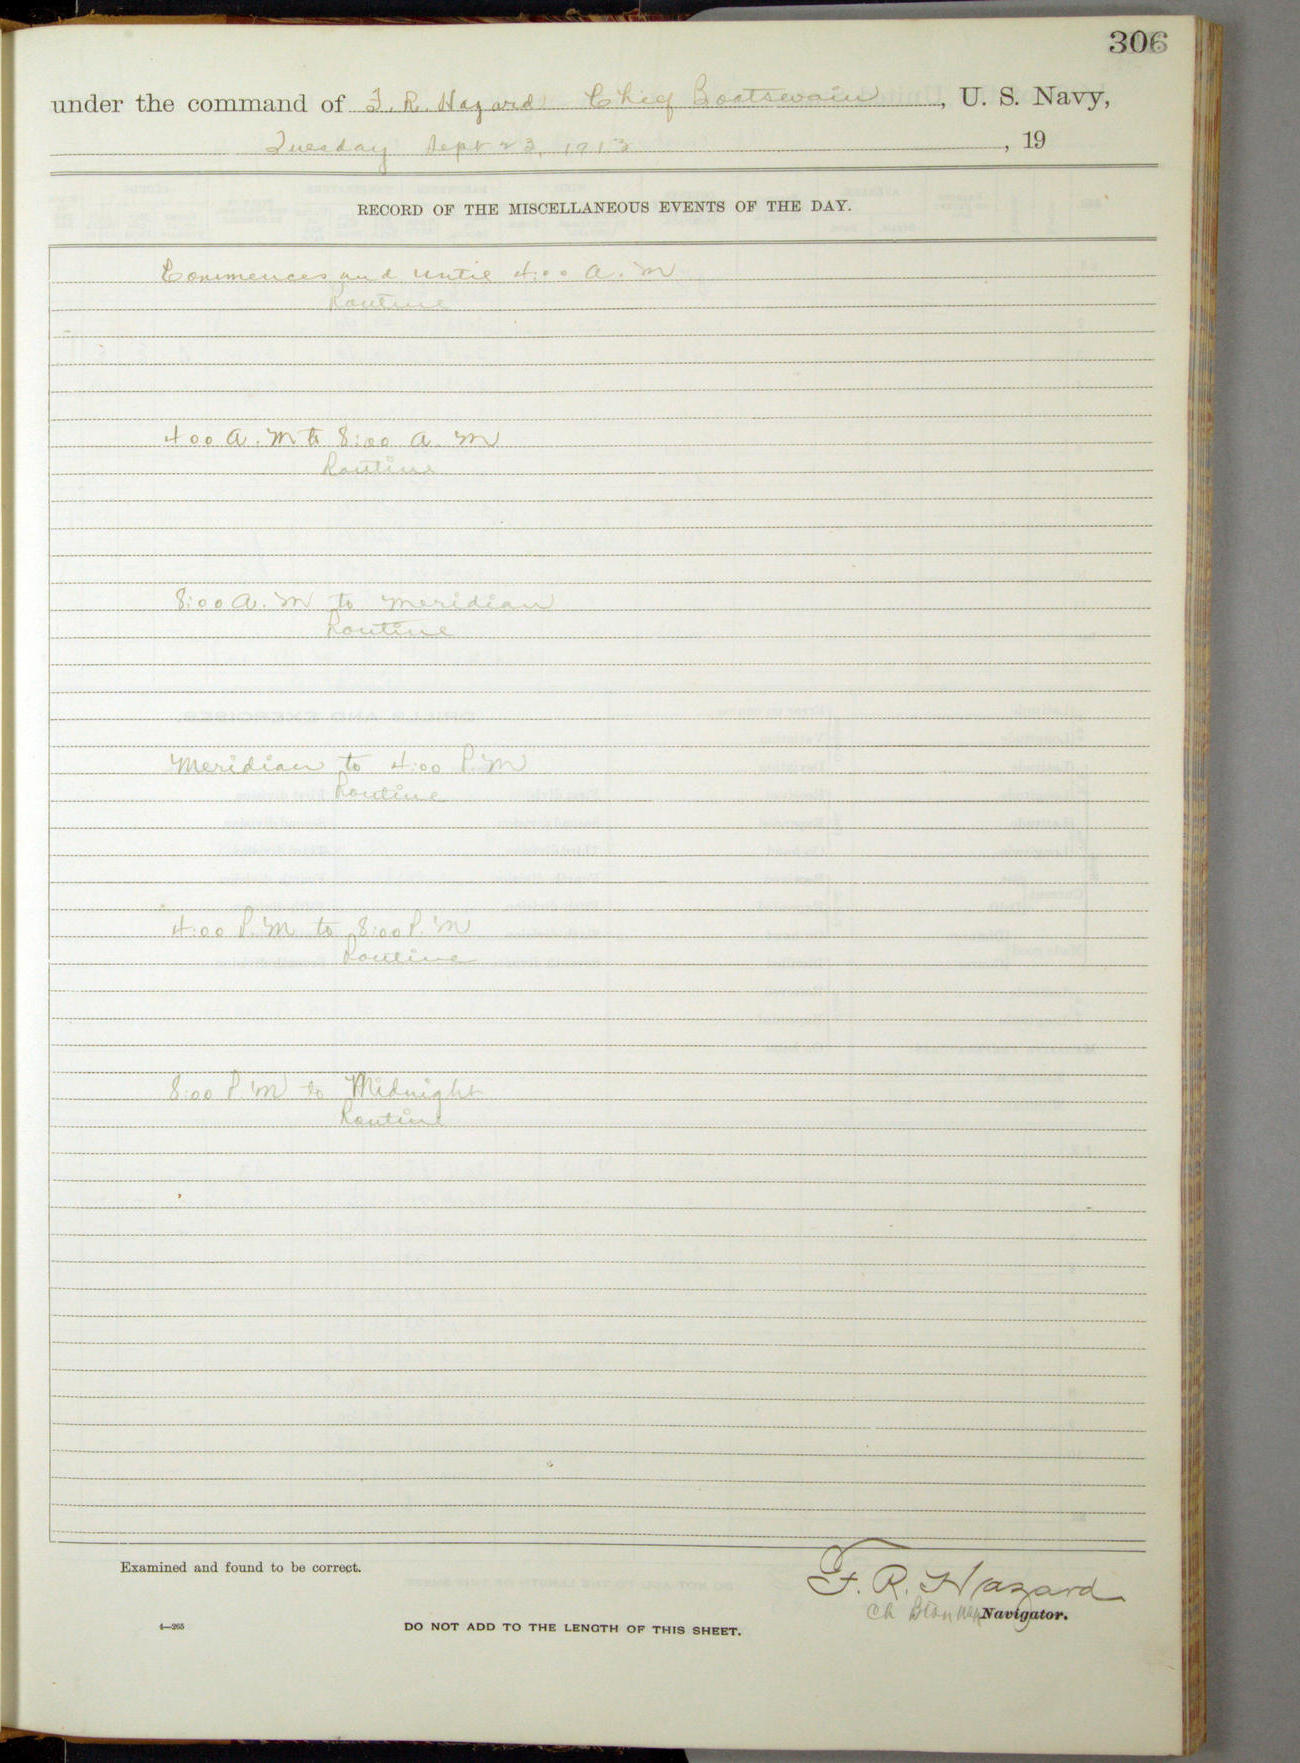 306
under the command of F. R. Hazard Chief Boatswain, U. S. Navy,
Tuesday Sept 23, 1913, 19
RECORD OF THE MISCELLANEOUS EVENTS OF THE DAY.
Commences and until 4:00 a.m
Routine
4 00 a.m to 8:00 a.m
Routine
8:00 a.m to meridian
Routine
Meridian to 4:00 P.M
Routine
4:00 P.M to 8:00 P.M
Routine
8:00 P.M to Midnight
Routine
Examined and found to be correct.
F. R. Hazard
Ch Btsn USN Navigator.
4—265
DO NOT ADD TO THE LENGTH OF THIS SHEET.